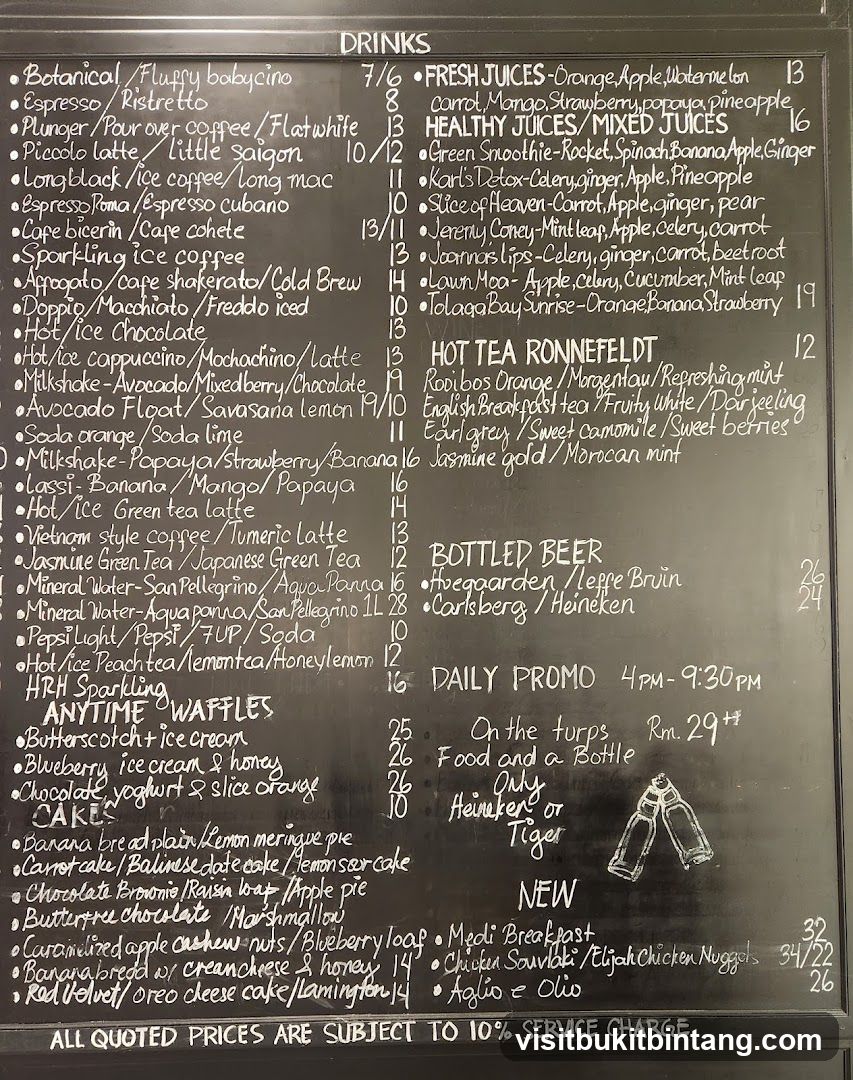 DRINKS
• Botanical / Fluffy babycino 7/6
• Espresso / Ristretto 8
• Plunger / Pour over coffee / Flat white 13
• Piccolo latte / little saigon 10/12
• Long black / ice coffee / long mac 11
• Espresso Roma / Espresso cubano 10
• Cafe bicerin / Cafe cohete 13/11
• Sparkling ice coffee 13
• Affogato / cafe shakerato / Cold Brew 14
• Doppio / Macchiato / Freddo iced 10
• Hot/ice Chocolate 13
• Hot/ice cappuccino / Mochachino / latte 13
• Milkshake - Avocado/Mixedberry/Chocolate 19
• Avocado Float / Savasana lemon 19/10
• Soda orange / Soda lime 11
• Milkshake - Papaya/strawberry/Banana 16
• Lassi - Banana / Mango / Papaya 16
• Hot/ice Green tea latte 14
• Vietnam style coffee / Tumeric Latte 13
• Jasmine Green Tea / Japanese Green Tea 12
• Mineral Water - San Pellegrino / Aqua Panna 16
• Mineral Water - Aqua panna / San Pellegrino 1L 28
• Pepsi Light / Pepsi / 7UP / Soda 10
• Hot/ice Peach tea / lemon tea / Honey lemon 12
HRH Sparkling 16
ANYTIME WAFFLES
• Butterscotch + ice cream 25
• Blueberry ice cream & honey 26
• Chocolate, yoghurt & slice orange 26
CAKES 10
• Banana bread plain / Lemon meringue pie
• Carrot cake / Balinese date cake / lemon sour cake
• Chocolate Brownie / Raisin loaf / Apple pie
• Butterfree chocolate / Marshmallow
• Caramelized apple cashew nuts / Blueberry loaf
• Banana bread w/ cream cheese & honey 14
• Red Velvet / oreo cheese cake / Lamington 14
• FRESH JUICES - Orange, Apple, Watermelon 13
carrot, Mango, Strawberry, papaya, pineapple
HEALTHY JUICES / MIXED JUICES 16
• Green Smoothie - Rocket, Spinach, Banana, Apple, Ginger
• Karl's Detox - Celery, ginger, Apple, Pineapple
• Slice of Heaven - Carrot, Apple, ginger, pear
• Jeremy Coney - Mint leaf, Apple, celery, carrot
• Joanna's lips - Celery, ginger, carrot, beetroot
• Lawn Moa - Apple, celery, cucumber, Mint leaf
• Tolaga Bay Sunrise - Orange, Banana, Strawberry 19
HOT TEA RONNEFELDT 12
Rooibos Orange / Morgentau / Refreshing mint
English Breakfast tea / Fruity White / Darjeeling
Earl grey / Sweet camomile / Sweet berries
Jasmine gold / Morocan mint
BOTTLED BEER
• Hoegaarden / leffe Bruin 26
• Carlsberg / Heineken 24
DAILY PROMO 4PM - 9:30PM
On the turps Rm. 29++
Food and a Bottle
Only
Heineken or
Tiger
NEW
• Medi Breakfast 32
• Chicken Souvlaki / Elijah Chicken Nuggets 34/22
• Aglio e Olio 26
ALL QUOTED PRICES ARE SUBJECT TO 10% SERVICE CHARGE
visitbukitbintang.com